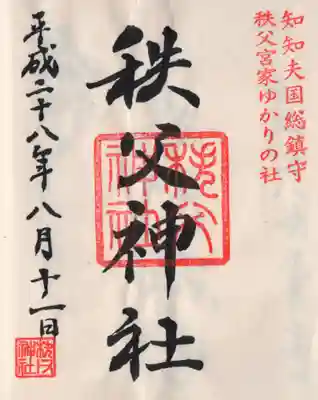 知知夫国総鎮守
秩父宮家ゆかりの社
秩父神社
秩父
神社
平成二十八年八月十一日
秩父
神社